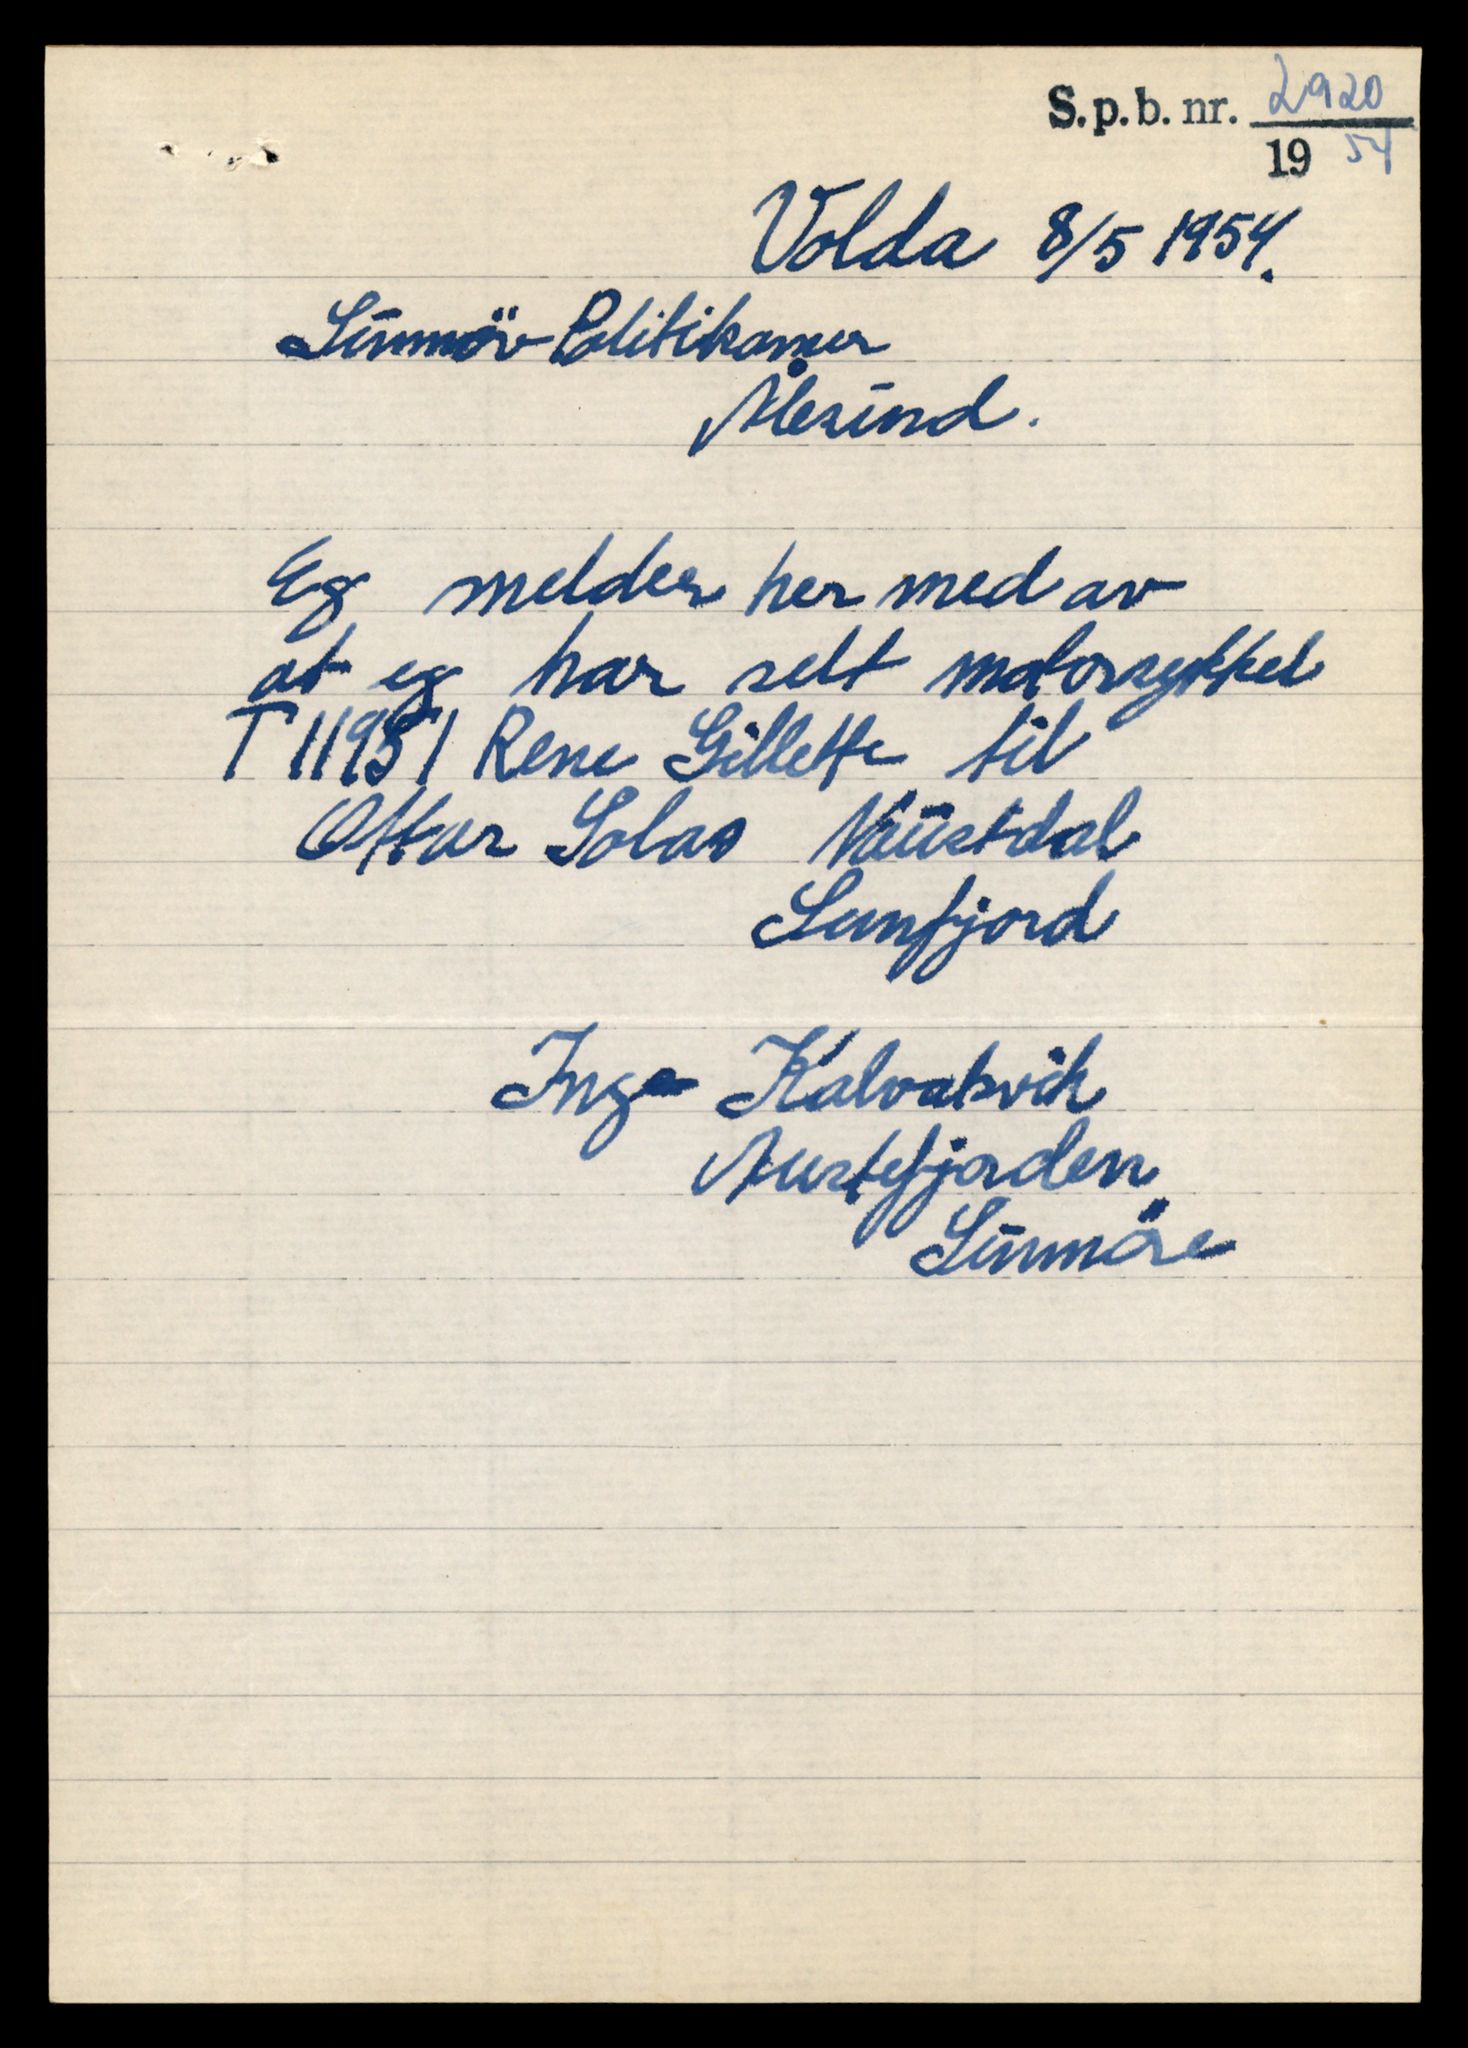 S.p.b. nr. 2920
19 54
Volda 8/5 1954.
Sunnmör Politikamer
Ålesund.
Eg melder her med av
at eg har selt motorsykkel
T 11951 Rene Gillette til
Ottar Solas Naustdal
Sunfjord
Inge Kalvatsvik
Austefjorden
Sunmöre